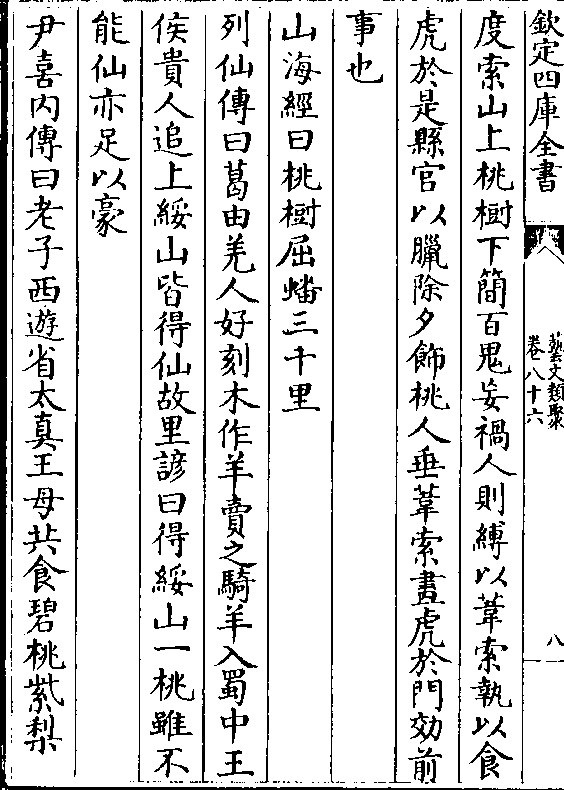 欽定四庫全書
藝文類聚
卷八十六
八
度索山上桃樹下簡百鬼妄禍人則縛以葦索執以食
虎於是縣官以臘除夕飾桃人垂葦索畫虎於門効前
事也
山海經曰桃樹屈蟠三千里
列仙傳曰葛由羌人好刻木作羊賣之騎羊入蜀中王
侯貴人追上綏山皆得仙故里諺曰得綏山一桃雖不
能仙亦足以豪
尹喜内傳曰老子西遊省太真王母共食碧桃紫梨